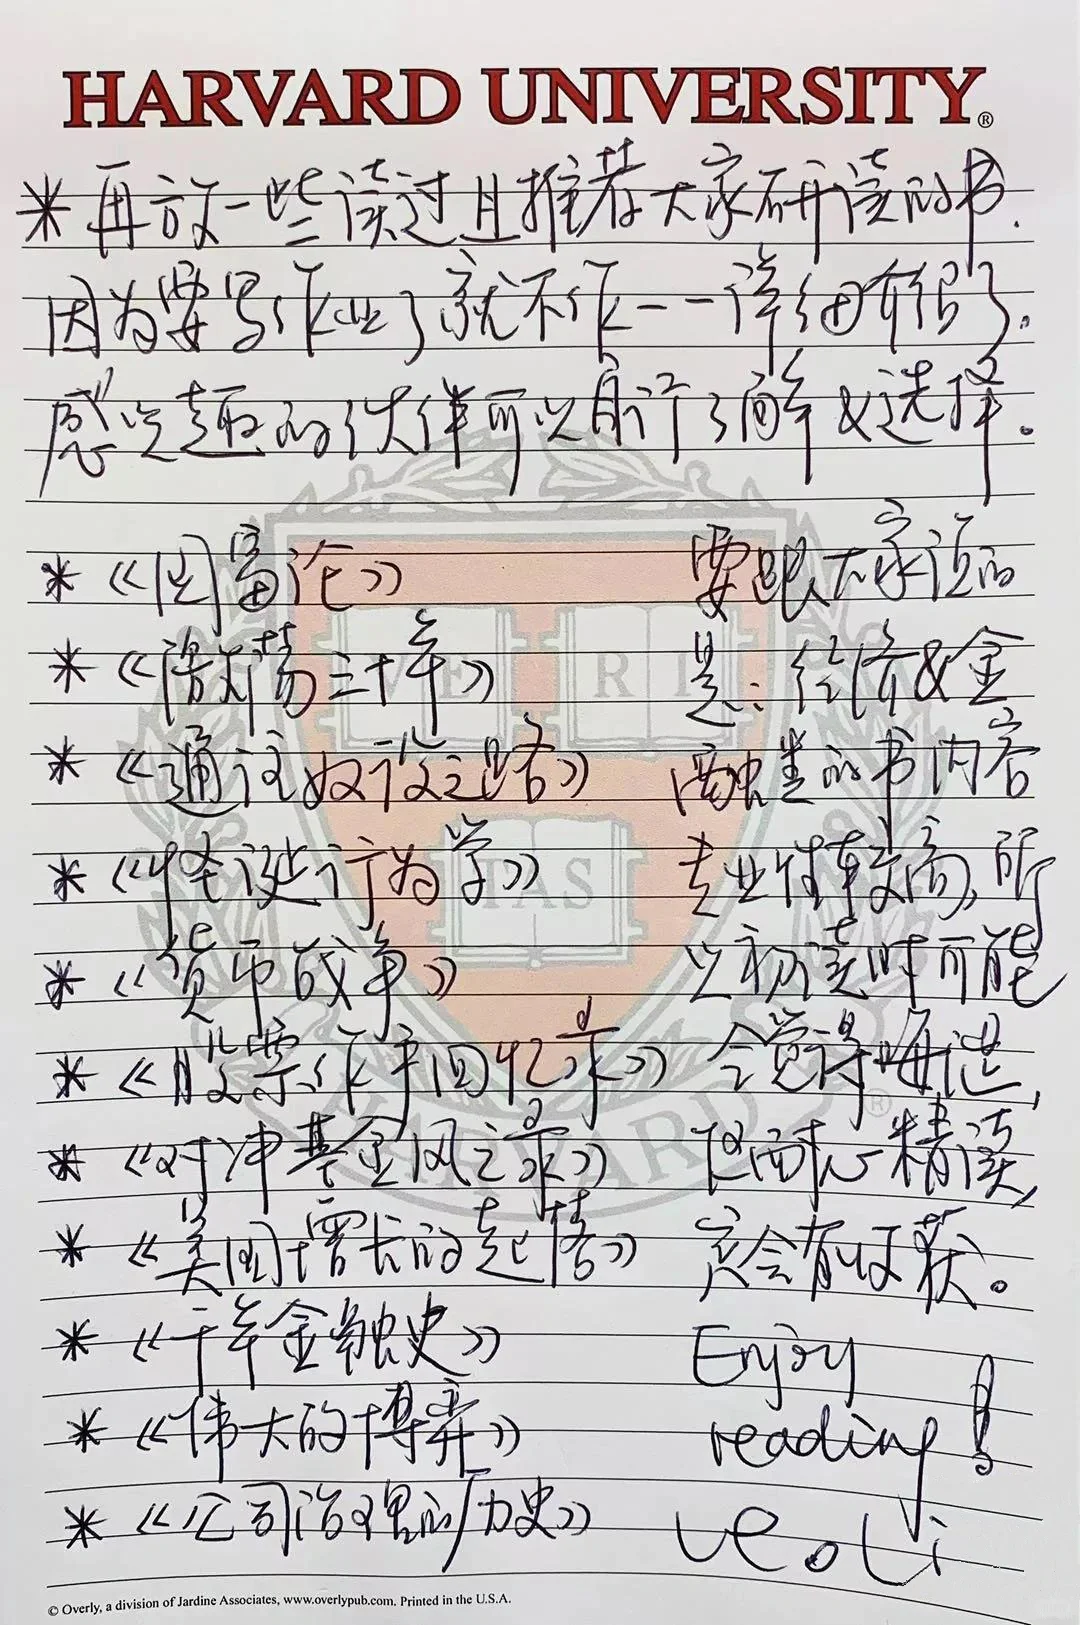 HARVARD UNIVERSITY®
* 再放一些读过且推荐大家研读的书.
因为要写作业了就不作一一详细介绍了。
感兴趣的伙伴可以自行了解&选择。
* 《国富论》
* 《激荡三十年》
* 《通往奴役之路》
* 《怪诞行为学》
* 《货币战争》
* 《股票作手回忆录》
* 《对冲基金风云录》
* 《美国增长的起落》
* 《千年金融史》
* 《伟大的博弈》
* 《公司治理的历史》
要跟大家说的
是：经济&金
融类的书内容
专业性较高,所
以初读时可能
会觉得晦涩,
但耐心精读,
定会有收获。
Enjoy
reading!
VERITAS
HARVARD
®
© Overly, a division of Jardine Associates, www.overlypub.com. Printed in the U.S.A.